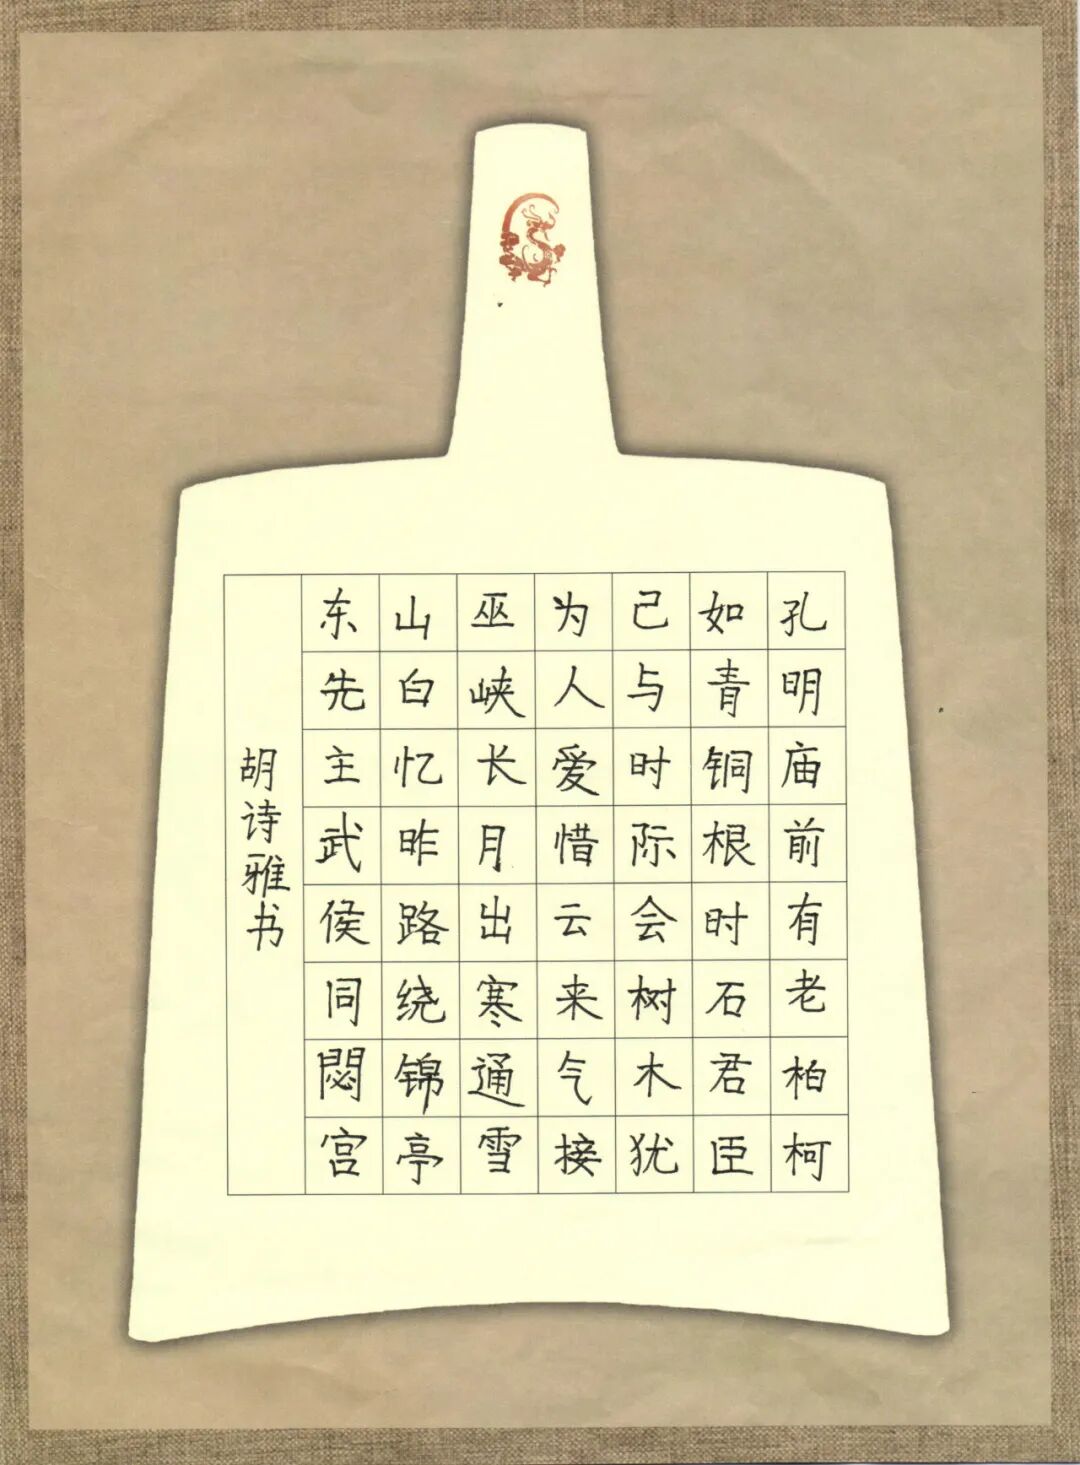 孔明庙前有老柏柯
如青铜根时石君臣
己与时际会树木犹
为人爱惜云来气接
巫峡长月出寒通雪
山白忆昨路绕锦亭
东先主武侯同閟宫
胡诗雅书